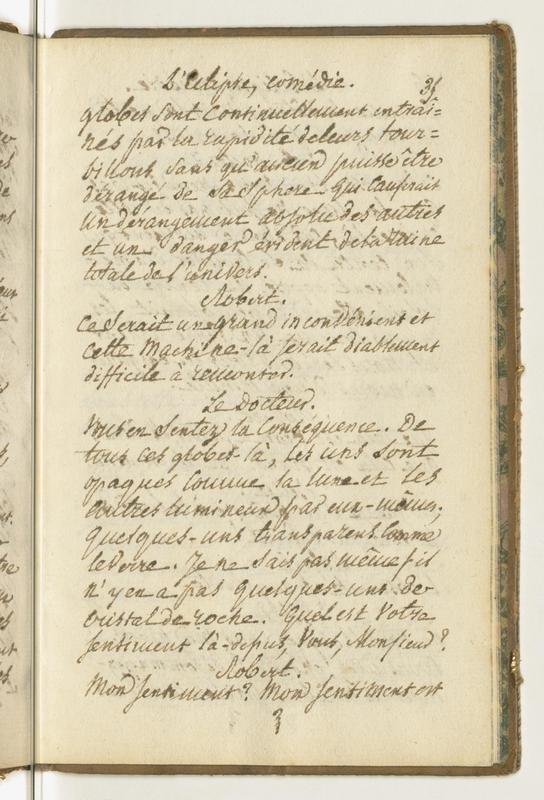 L'Eclipse, comédie. 35
globes sont continuellement entraî=
nés par la rapidité de leurs tour=
billons sans qu'aucun puisse être
dérangé de sa sphere qui causerait
un dérangement absolu des autres
et un danger évident de la ruine
totale de l'univers.
Robert.
Ce serait un grand inconvénient et
cette machine-là serait diablement
difficile à remonter.
Le Docteur.
Vous en sentez la conséquence. De
tous ces globes-là, les uns sont
opaques comme la lune et les
autres lumineux par eux-mêmes,
quelques-uns transparens comme
le verre. Je ne sais pas même s'il
n'y en a pas quelques-uns de
cristal de roche. Quel est votre
sentiment là-dessus, vous, Monsieur?
Robert.
Mon sentiment? Mon sentiment est
3